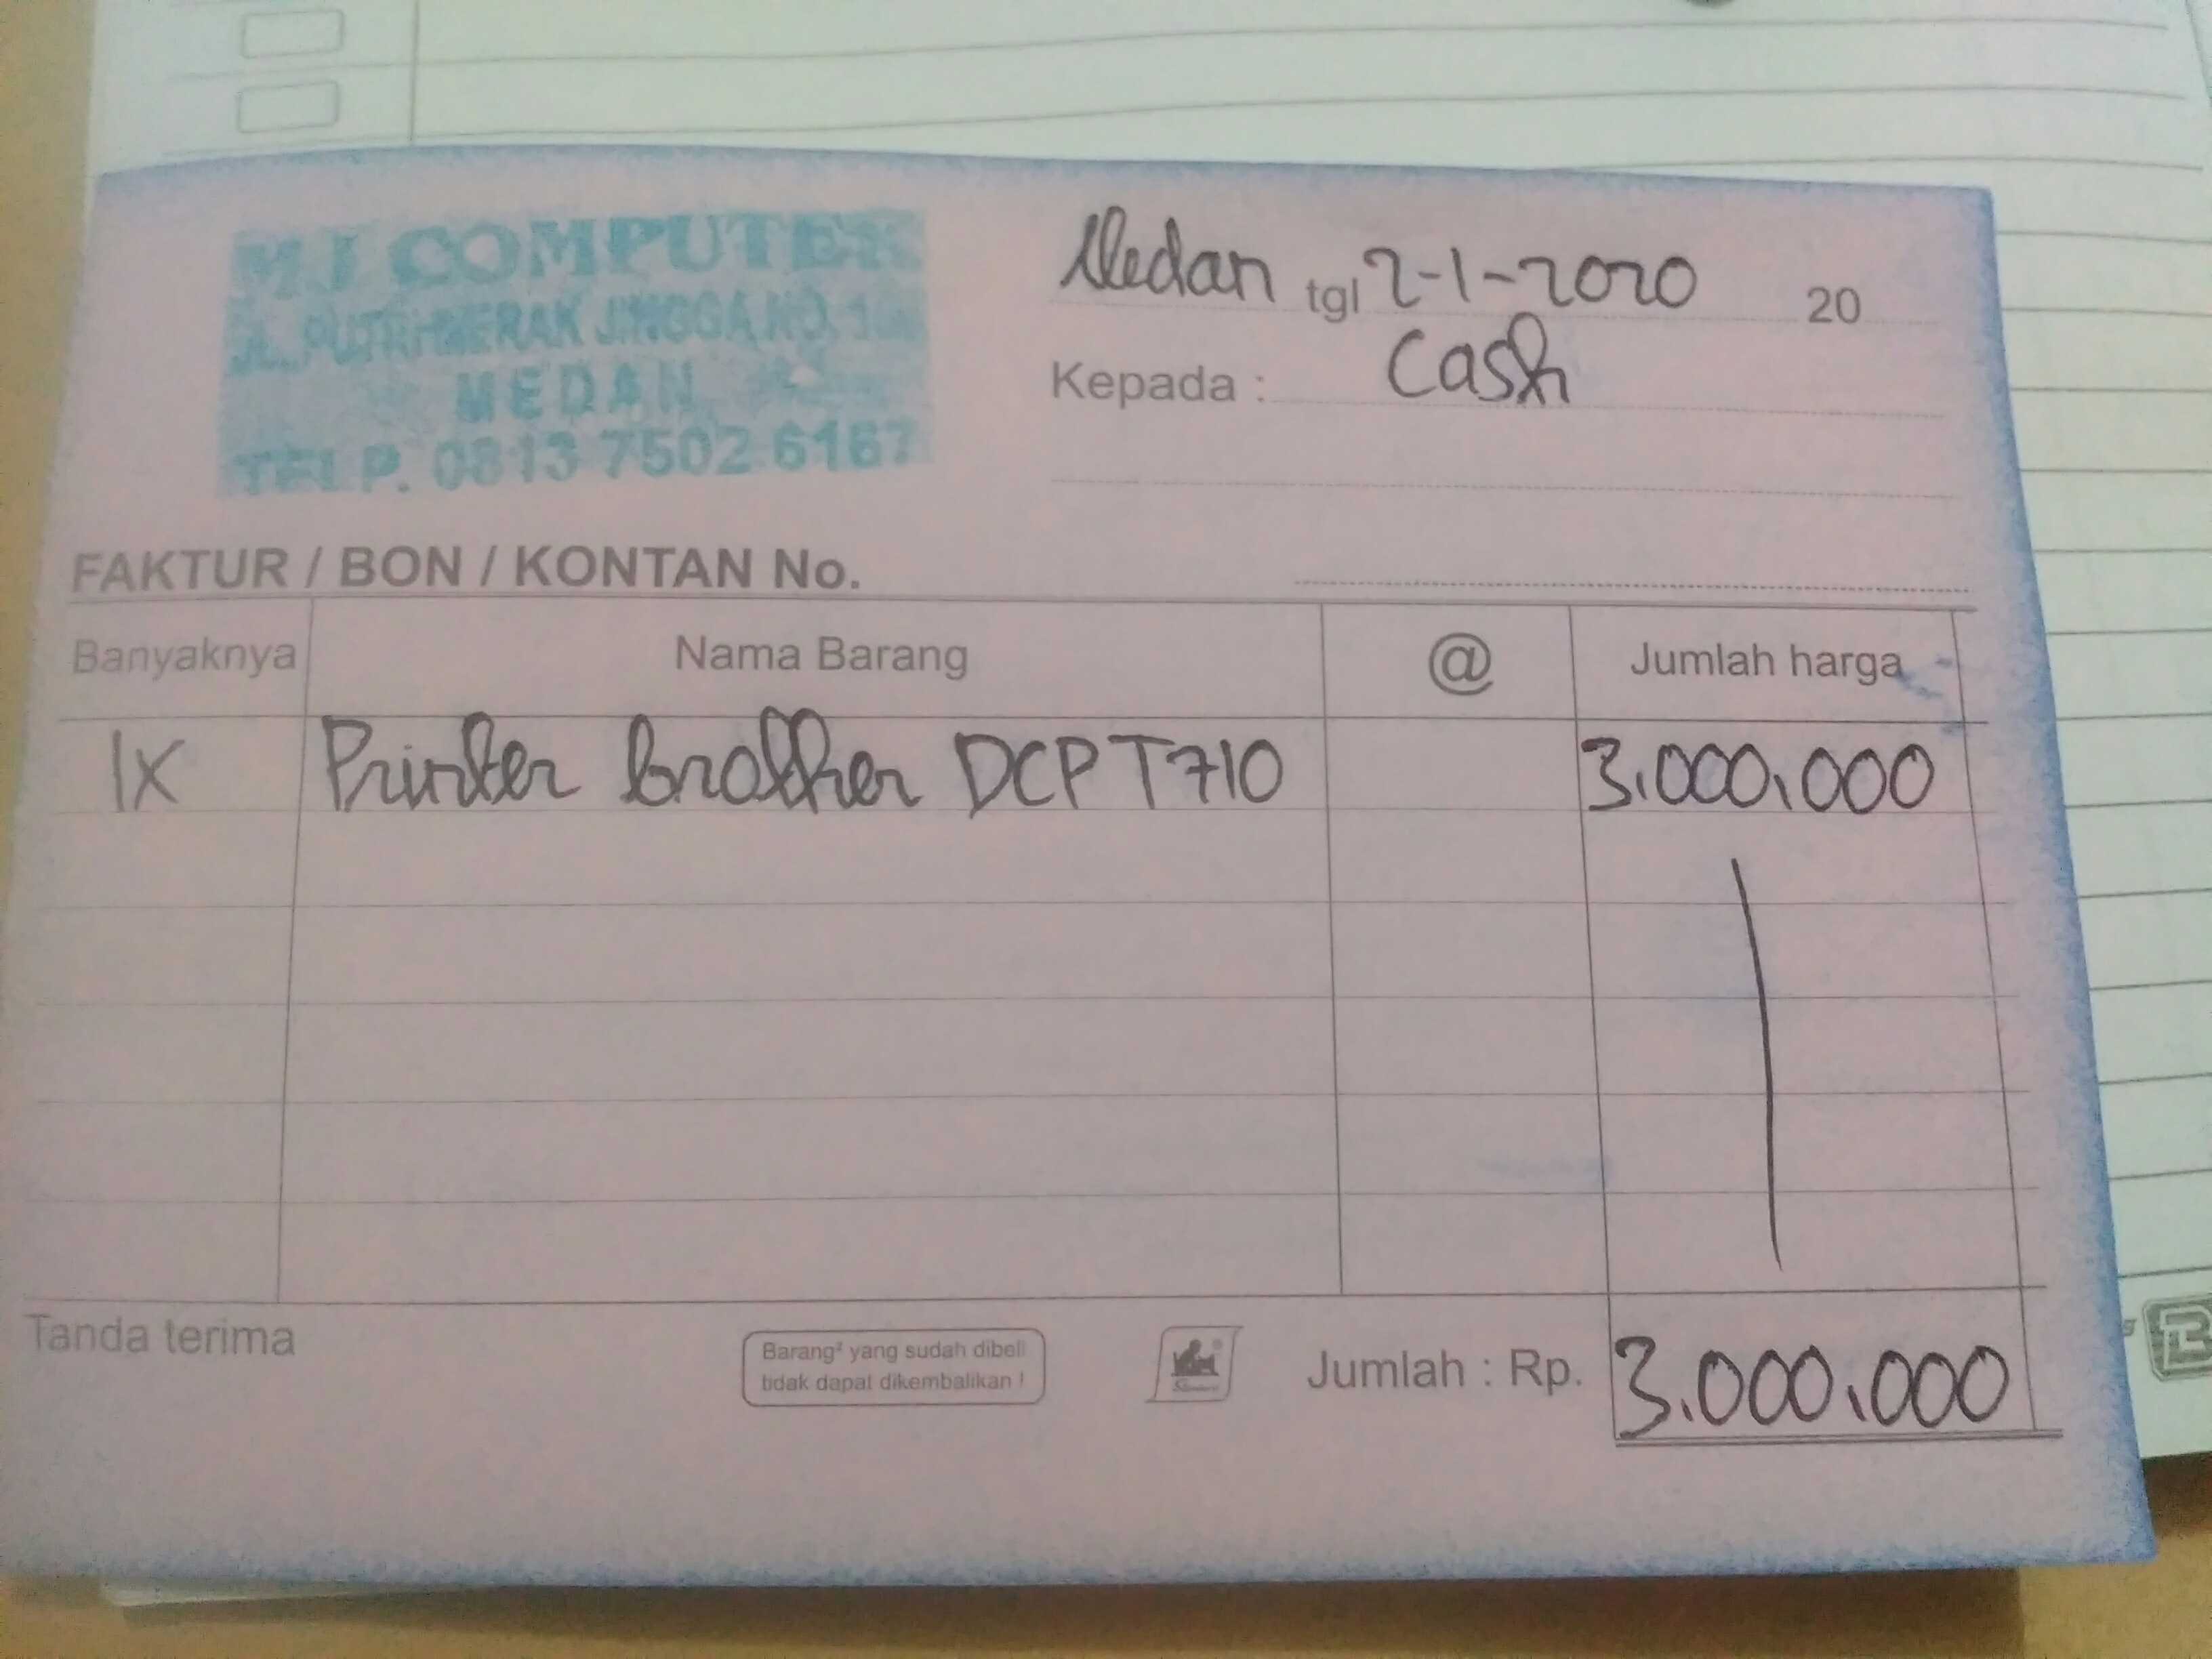 MJ COMPUTER
JL. PUTRI MERAK JINGGA NO.
MEDAN
TELP. 0813 7502 6167
Medan tgl 2-1-2020 20
Kepada : Cash
FAKTUR / BON / KONTAN No.
Banyaknya Nama Barang @ Jumlah harga
1X Printer brother DCP T710 3.000.000
Tanda terima
Barang² yang sudah dibeli
tidak dapat dikembalikan !
Jumlah : Rp. 3.000.000